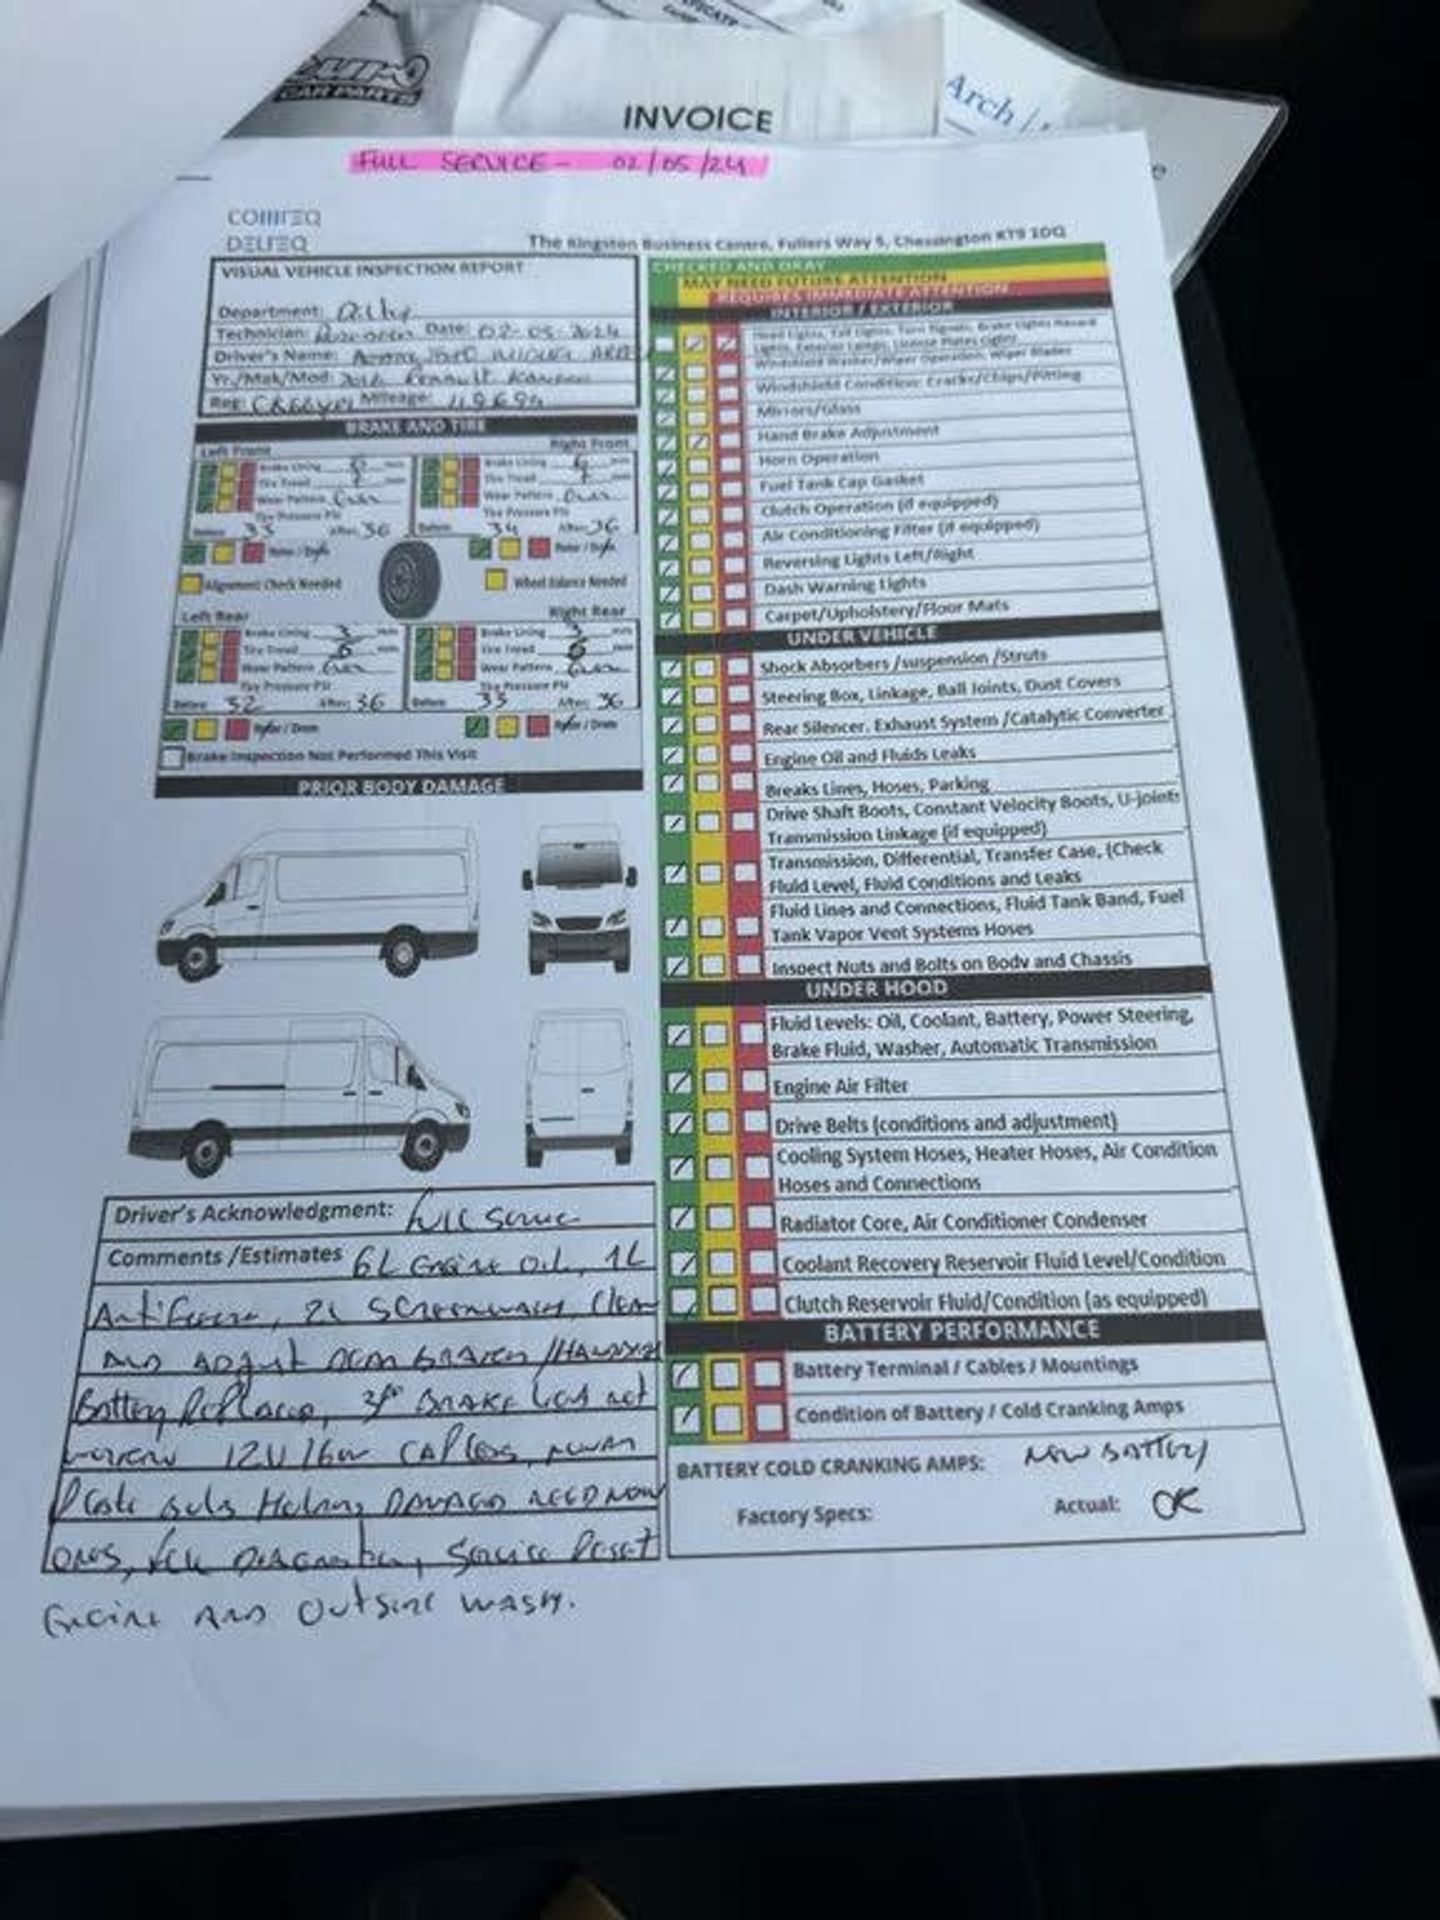 CAR PARTS
INVOICE
Arch
FULL SERVICE - 02/05/24
The Kingston Business Centre, Fullers Way S, Chessington KT9 1DQ
VISUAL VEHICLE INSPECTION REPORT
Department:
Technician: Date: 02-05-2024
Driver's Name:
Yr./Mak/Mod: Renault Kangoo
Reg: Mileage:
BRAKE AND TIRE
Left Front Right Front
Brake Lining 6 mm Brake Lining 6 mm
Tire Tread 7 mm Tire Tread 7 mm
Wear Pattern Wear Pattern
Tire Pressure PSI Tire Pressure PSI
Before 33 After 36 Before 34 After 36
Rotor / Drum Rotor / Drum
Alignment Check Needed Wheel Balance Needed
Left Rear Right Rear
Brake Lining 3 mm Brake Lining 3 mm
Tire Tread 6 mm Tire Tread 6 mm
Wear Pattern Wear Pattern
Tire Pressure PSI Tire Pressure PSI
Before 32 After 36 Before 33 After 36
Rotor / Drum Rotor / Drum
Brake Inspection Not Performed This Visit
PRIOR BODY DAMAGE
Driver's Acknowledgment: full service
Comments /Estimates 6L Engine Oil, 1L
Antifreeze, 2L Screenwash, Clean
and adjust rear brakes /
Battery Replaced, Brake not
12V 16w capless, number
plate Holding Damaged need now
ones, full Diagnostics, Service Reset
Engine and outside wash.
CHECKED AND OKAY
MAY NEED FUTURE ATTENTION
REQUIRES IMMEDIATE ATTENTION
INTERIOR / EXTERIOR
Head Lights, Tail Lights, Turn Signals, Brake Lights Hazard
Lights, Exterior Lamps, License Plates Lights
Windshield Washer/Wiper Operation, Wiper Blades
Windshield Condition: Cracks/Chips/Pitting
Mirrors/Glass
Hand Brake Adjustment
Horn Operation
Fuel Tank Cap Gasket
Clutch Operation (if equipped)
Air Conditioning Filter (if equipped)
Reversing Lights Left/Right
Dash Warning Lights
Carpet/Upholstery/Floor Mats
UNDER VEHICLE
Shock Absorbers /suspension /Struts
Steering Box, Linkage, Ball Joints, Dust Covers
Rear Silencer, Exhaust System /Catalytic Converter
Engine Oil and Fluids Leaks
Breaks Lines, Hoses, Parking
Drive Shaft Boots, Constant Velocity Boots, U-joints
Transmission Linkage (if equipped)
Transmission, Differential, Transfer Case, (Check
Fluid Level, Fluid Conditions and Leaks
Fluid Lines and Connections, Fluid Tank Band, Fuel
Tank Vapor Vent Systems Hoses
Inspect Nuts and Bolts on Body and Chassis
UNDER HOOD
Fluid Levels: Oil, Coolant, Battery, Power Steering,
Brake Fluid, Washer, Automatic Transmission
Engine Air Filter
Drive Belts (conditions and adjustment)
Cooling System Hoses, Heater Hoses, Air Condition
Hoses and Connections
Radiator Core, Air Conditioner Condenser
Coolant Recovery Reservoir Fluid Level/Condition
Clutch Reservoir Fluid/Condition (as equipped)
BATTERY PERFORMANCE
Battery Terminal / Cables / Mountings
Condition of Battery / Cold Cranking Amps
BATTERY COLD CRANKING AMPS: NEW BATTERY
Factory Specs: Actual: OK